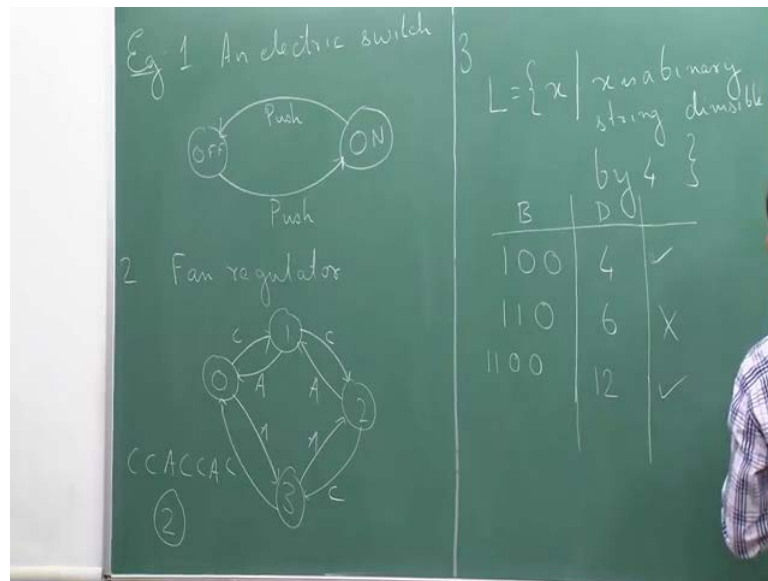 Eg 1 An electric switch
Push
OFF
ON
Push
2 Fan regulator
C
1
C
0
A
A
2
A
A
CCACCAC
3
C
2
3
L={x | x is a binary
string divisible
by 4 }
B D
100 4 ✓
110 6 X
1100 12 ✓